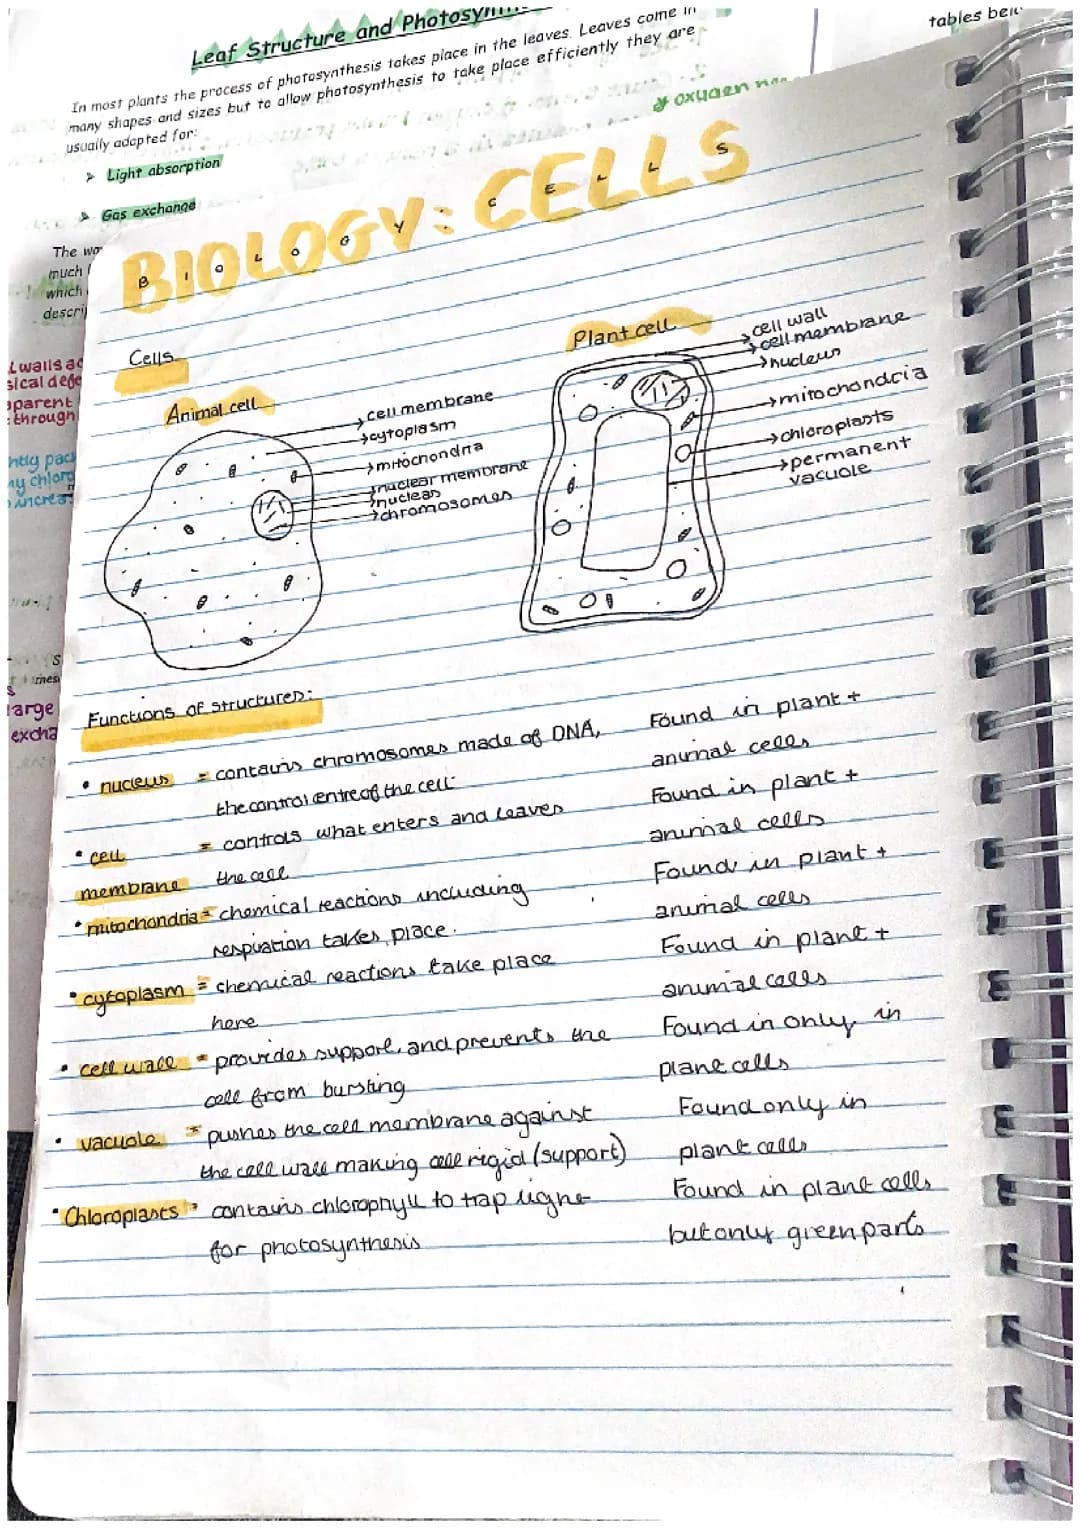 Leaf Structure and
In most plants the process of photosynthesis takes place in the leaves. Leaves come in
many shapes and sizes but to allow photosynthesis to take place efficiently they are
usually adapted for:
➤ Light absorption
➤ Gas exchange
tables
oxygen
The
much
which
BIOLOGY: CELLS
BIOLOGY: CELLS
Cells
Animal cell
cell membrane
cytoplasm
mitochondria
nuclear membrane
nucleas
chromosomes
Plant cell
cell wall
cell membrane
nucleus
mitochondria
chloroplasts
permanent
vacuole
walls
through
large
Functions of structures:
• nucleus = contains chromosomes made of DNA, Found in plant +
the control entre of the cell animal cells
• cell = controls what enters and leaves Found in plant +
membrane the cell animal cells
• mitochondria = chemical reactions including Found in plant +
respiration takes place. animal cells
• cytoplasm = chemical reactions take place Found in plant +
here animal cells
• cell wall = provides support, and prevents the Found in only in
cell from bursting plant cells
• vacuole = pushes the cell membrane against Found only in
the cell wall making cell rigid (support) plant cells
• Chloroplasts = contains chlorophyll to trap light Found in plant cells
for photosynthesis but only green parts